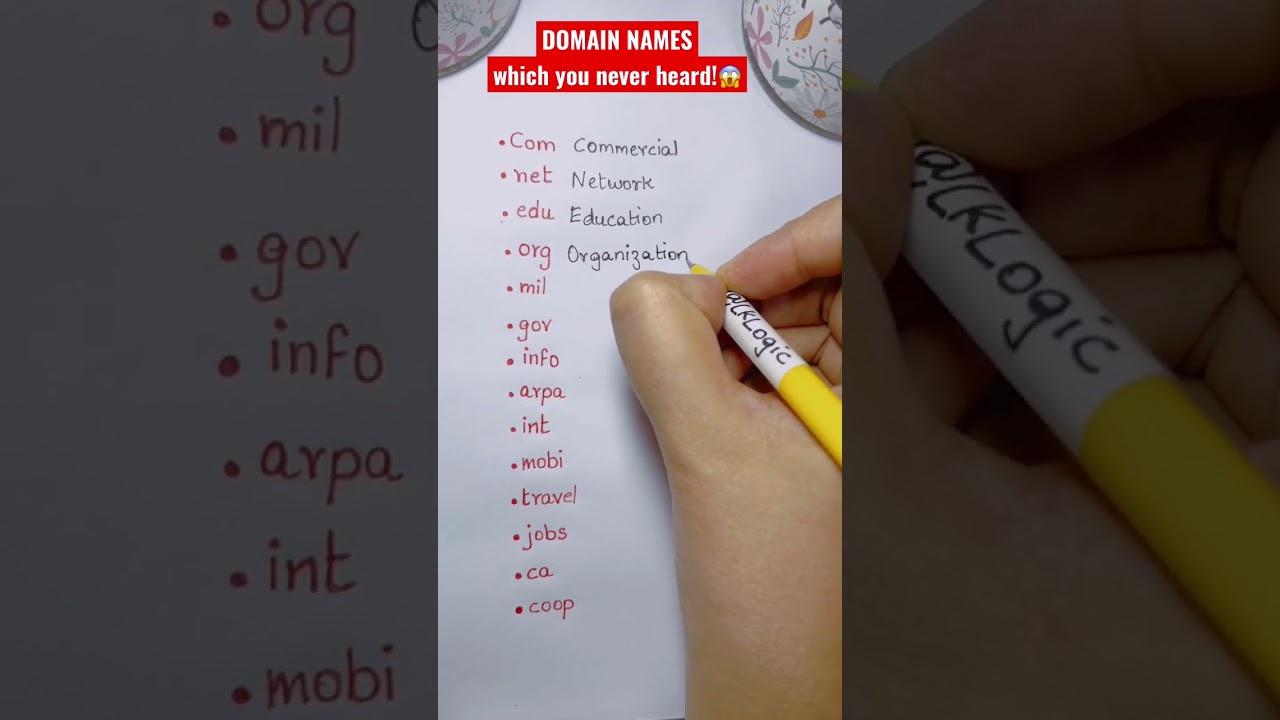 DOMAIN NAMES
which you never heard!😱
.Com Commercial
.net Network
.edu Education
.org Organization
.mil
.gov
.info
.arpa
.int
.mobi
.travel
.jobs
.ca
.coop
@LKLogic
org
.mil
.gov
.info
.arpa
.int
.mobi
@LKLogic